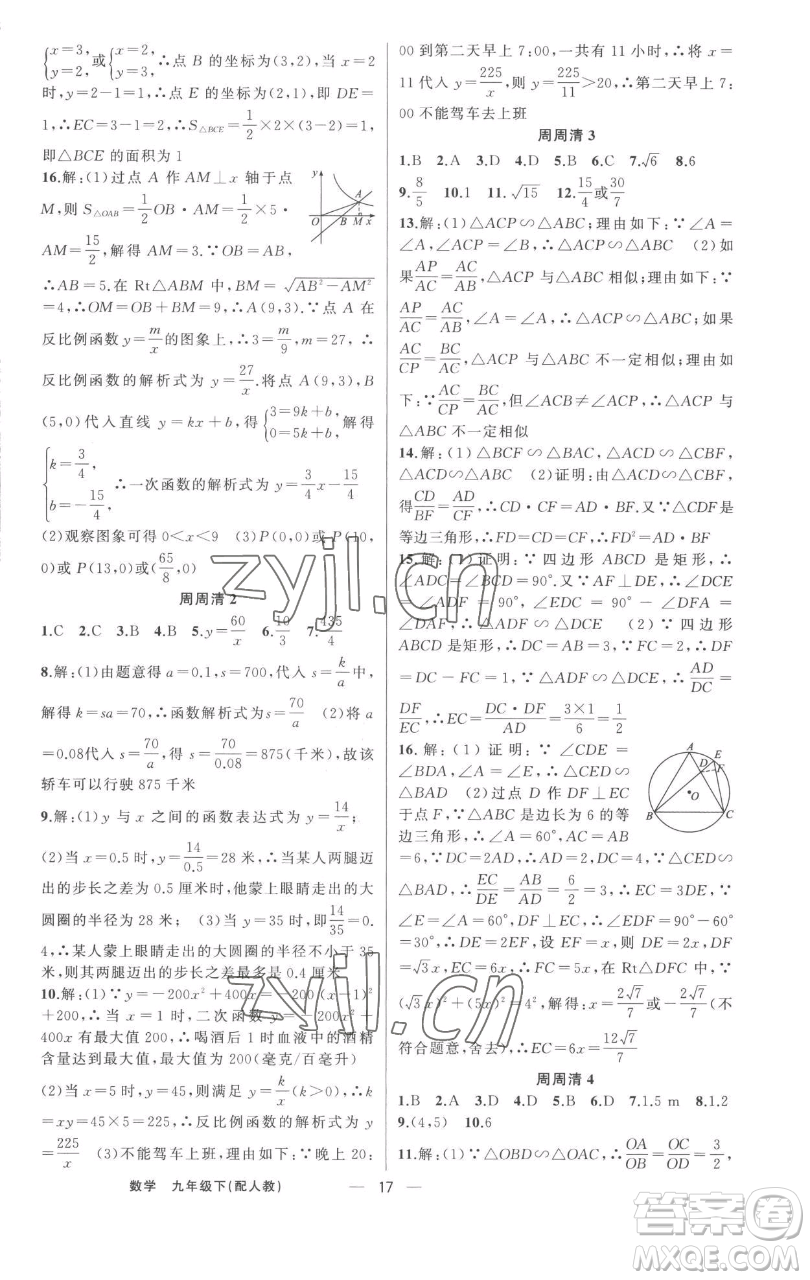 {x=3, y=2, 或{x=2, y=3, ∴点 B 的坐标为(3,2),当 x=2
时,y=2-1=1,∴点 E 的坐标为(2,1),即 DE=
1,∴EC=3-1=2,∴S△BCE=1/2×2×(3-2)=1,
即△BCE 的面积为 1
16.解:(1)过点 A 作 AM⊥x 轴于点
M,则 S△OAB=1/2OB·AM=1/2×5·
AM=15/2,解得 AM=3.∵OB=AB,
∴AB=5.在 Rt△ABM 中,BM=√(AB²-AM²)
=4,∴OM=OB+BM=9,∴A(9,3).∵点 A 在
反比例函数 y=m/x的图象上,∴3=m/9,m=27,∴
反比例函数的解析式为 y=27/x.将点 A(9,3),B
(5,0)代入直线 y=kx+b,得{3=9k+b, 0=5k+b, 解得
{k=3/4, b=-15/4, ∴一次函数的解析式为 y=3/4x-15/4
(2)观察图象可得 0<x<9 (3)P(0,0)或 P(10,
0)或 P(13,0)或(65/8,0)
y
A
O
B
M
x
周周清 2
1.C 2.C 3.B 4.B 5.y=60/x 6.10/3 7.135/4
8.解:(1)由题意得 a=0.1,s=700,代入 s=k/a中,
解得 k=sa=70,∴函数解析式为s=70/a (2)将 a
=0.08代入 s=70/a,得 s=70/0.08=875(千米),故该
轿车可以行驶 875 千米
9.解:(1)y 与 x 之间的函数表达式为 y=14/x;
(2)当 x=0.5 时,y=14/0.5=28 米,∴当某人两腿迈
出的步长之差为 0.5 厘米时,他蒙上眼睛走出的大
圆圈的半径为 28 米; (3)当 y=35 时,即14/35=0.
4,∴某人蒙上眼睛走出的大圆圈的半径不小于 35
米,则其两腿迈出的步长之差最多是 0.4 厘米
10.解:(1)∵y=-200x²+400x=-200(x-1)²
+200,∴当 x=1 时,二次函数 y=-200x²+
400x 有最大值 200,∴喝酒后 1 时血液中的酒精
含量达到最大值,最大值为 200(毫克/百毫升)
(2)当 x=5 时,y=45,则满足 y=k/x(k>0),∴k
=xy=45×5=225,∴反比例函数的解析式为 y=
225/x (3)不能驾车上班,理由如下:∵晚上 20:
00 到第二天早上 7:00,一共有 11 小时,∴将 x=
11 代入 y=225/x,则 y=225/11>20,∴第二天早上 7:
00 不能驾车去上班
周周清 3
1.B 2.A 3.D 4.D 5.B 6.C 7.√6 8.6
9.8/5 10.1 11.√15 12.15/4或30/7
13.解:(1)△ACP∽△ABC;理由如下:∵∠A=
∠A,∠ACP=∠B,∴△ACP∽△ABC (2)如
果AP/AC=AC/AB,△ACP 与△ABC 相似;理由如下:∵
AP/AC=AC/AB,∠A=∠A,∴△ACP∽△ABC;如果
AC/CP=BC/AC,△ACP 与△ABC 不一定相似;理由如
下:∵AC/CP=BC/AC,但∠ACB≠∠ACP,∴△ACP 与
△ABC 不一定相似
14.解:(1)△BCF∽△BAC,△ACD∽△CBF,
△ACD∽△CBF (2)证明:∵△ACD∽△CBF,
得CD/BF=AD/CF,∴CD·CF=AD·BF.又∵△CDF是
等边三角形,∴FD=CD=CF,∴FD²=AD·BF
15.解:(1)证明:∵四边形 ABCD 是矩形,∴
∠ADC=∠BCD=90°.又∵AF⊥DE,∴∠ADF
+∠DAF=90°,∠EDC=90°-∠DFA=
∠DAF,∴△ADF∽△DCE (2)∵四边形
ABCD 是矩形,∴DC=AB=3,∵FC=2,∴DF
=DC-FC=1,∵△ADF∽△DCE,∴AD/DC=
DF/EC,∴EC=DC·DF/AD=3×1/6=1/2
16.解:(1)证明:∵∠CDE=
∠BDA,∠A=∠E,∴△DCE∽
△BAD (2)过点 D 作 DF⊥EC
于点 F,∵△ABC 是边长为 6 的等
边三角形,∴∠A=60°,AC=AB
=6,∵DC=2AD,∴AD=2,DC=4,∵△DCE∽
△BAD,∴EC/DE=AB/AD=6/2=3,∴EC=3DE,∵
∠E=∠A=60°,DF⊥EC,∴∠EDF=90°-60°
=30°,∴设 EF=x,则 DE=2x,DF=
√3x,EC=6x,∴FC=5x,在 Rt△DFC 中,∵
(√3x)²+(5x)²=4²,解得:x=2√7/7或-2√7/7(不
符合题意,舍去),∴EC=6x=12√7/7
A
D
E
F
O
B
C
周周清 4
1.B 2.A 3.C 4.D 5.B 6.D 7.1.5 m 8.1.2
9.(4,5) 10.6
11.解:(1)∵△OBD∽△OAC,∴OA/OB=OC/OD=3/2,
数学 九年级下(配人教) — 17 —
zyjl.cn
zyjl.cn
答案圈
MXQE.COM